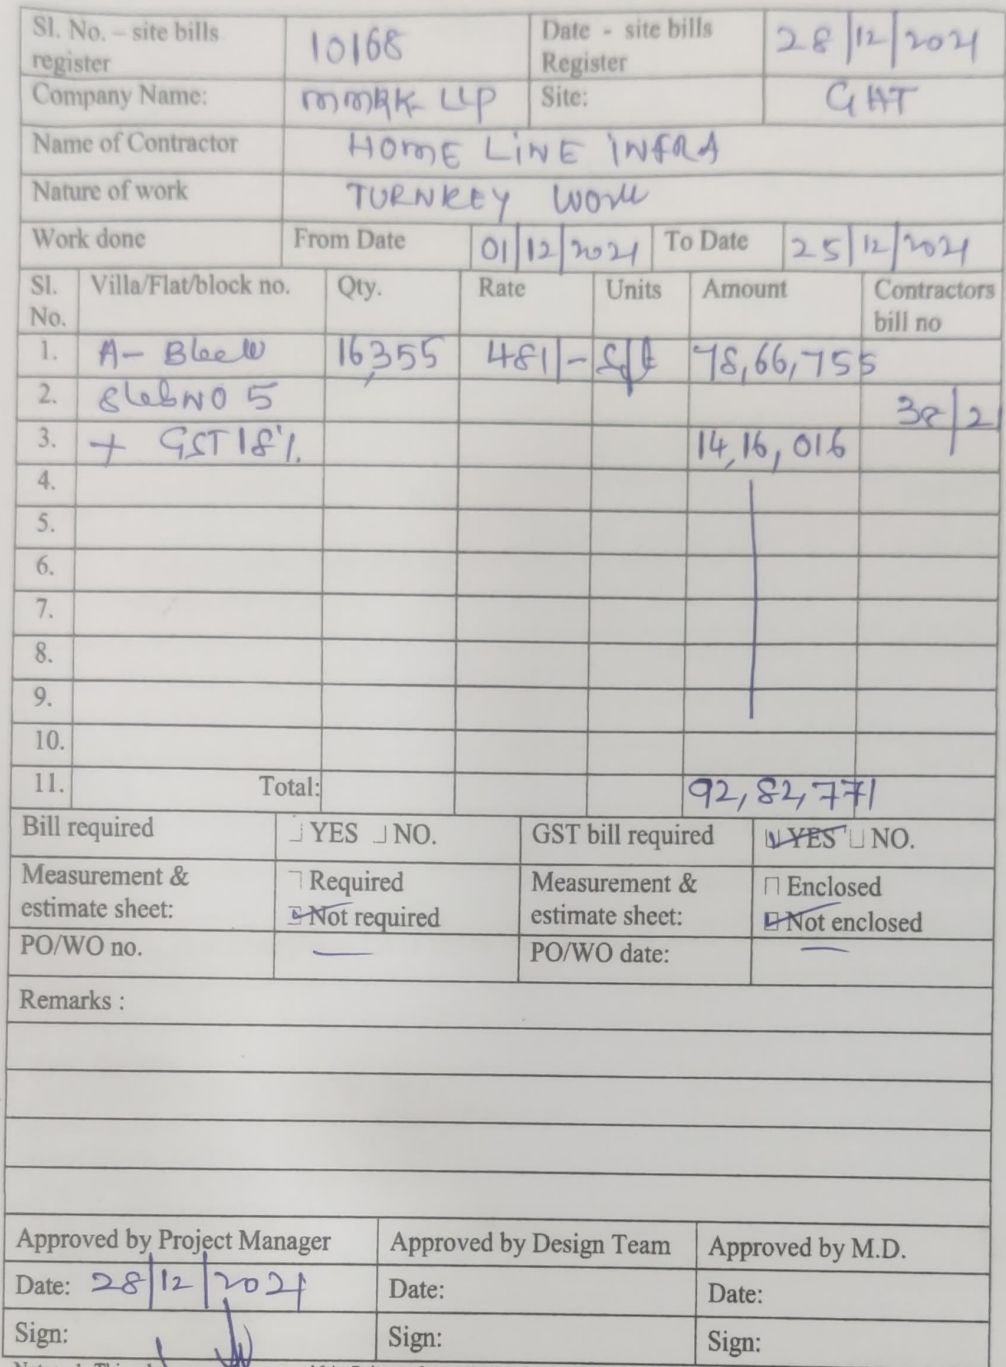 Sl. No. – site bills register 10168 Date - site bills Register 28/12/2021
Company Name: MMRK LLP Site: GHT
Name of Contractor HOME LINE INFRA
Nature of work TURNKEY WORK
Work done From Date 01/12/2021 To Date 25/12/2021
Sl. No. Villa/Flat/block no. Qty. Rate Units Amount Contractors bill no
1. A- Block 16,355 481/- Sft 78,66,755
2. Slab NO 5
3. + GST 18% 14,16,016
4.
5.
6.
7.
8.
9.
10.
11. Total: 92,82,771
Bill required YES NO. GST bill required YES NO.
Measurement & estimate sheet: Required Not required Measurement & estimate sheet: Enclosed Not enclosed
PO/WO no. — PO/WO date: —
Remarks :
Approved by Project Manager Approved by Design Team Approved by M.D.
Date: 28/12/2021 Date: Date:
Sign: Sign: Sign: